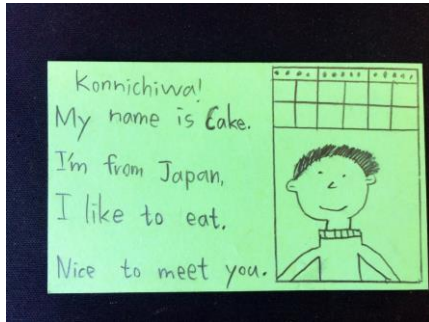 Konnichiwa!
My name is Cake.
I'm from Japan,
I like to eat.
Nice to meet you.